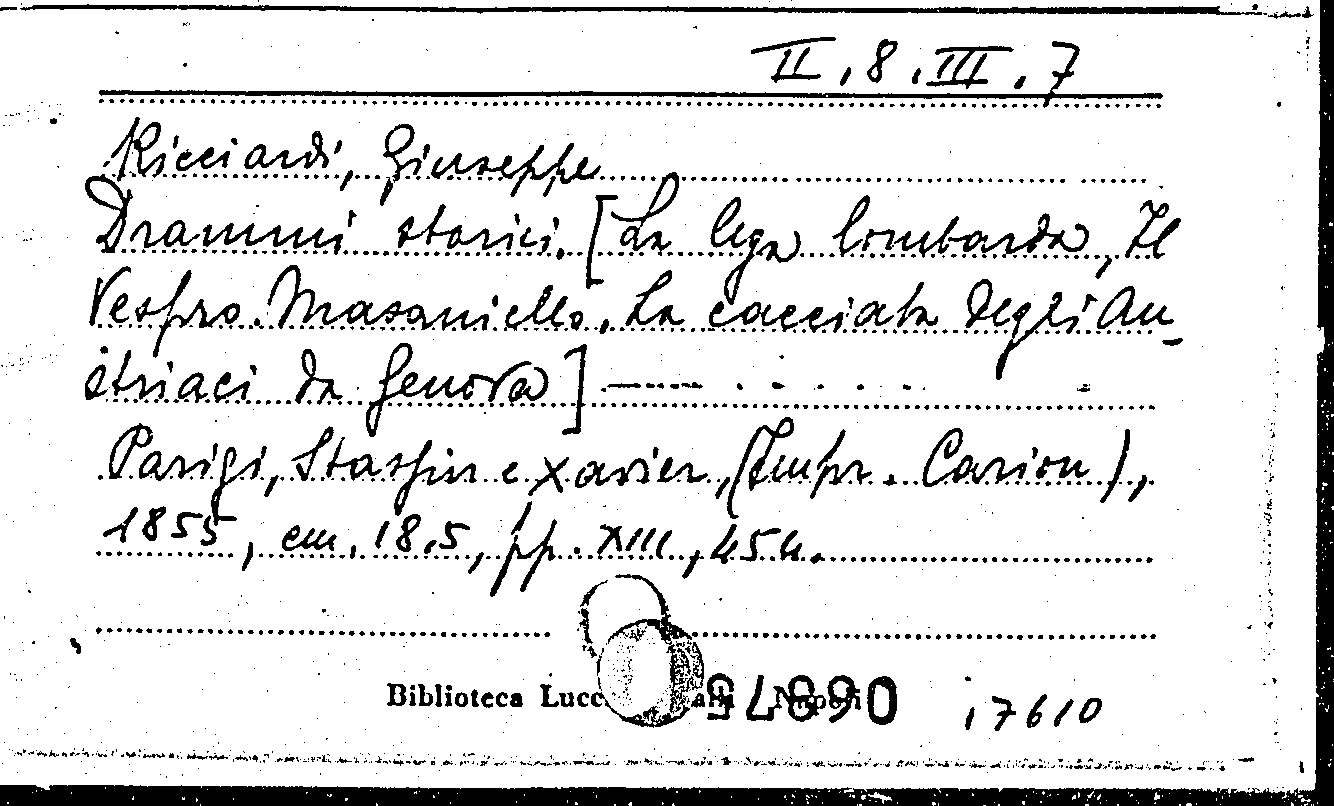 II.8.III.7
Ricciardi, Giuseppe
Drammi storici. [La lega lombarda, Il
Vespro. Masaniello. La cacciata degli Au-
striaci da Genova]
Parigi, Stassin e Xavier, (Impr. Carion),
1855, cm. 18,5, pp. XIII, 454.
Biblioteca Lucc Napoli 068975 17610